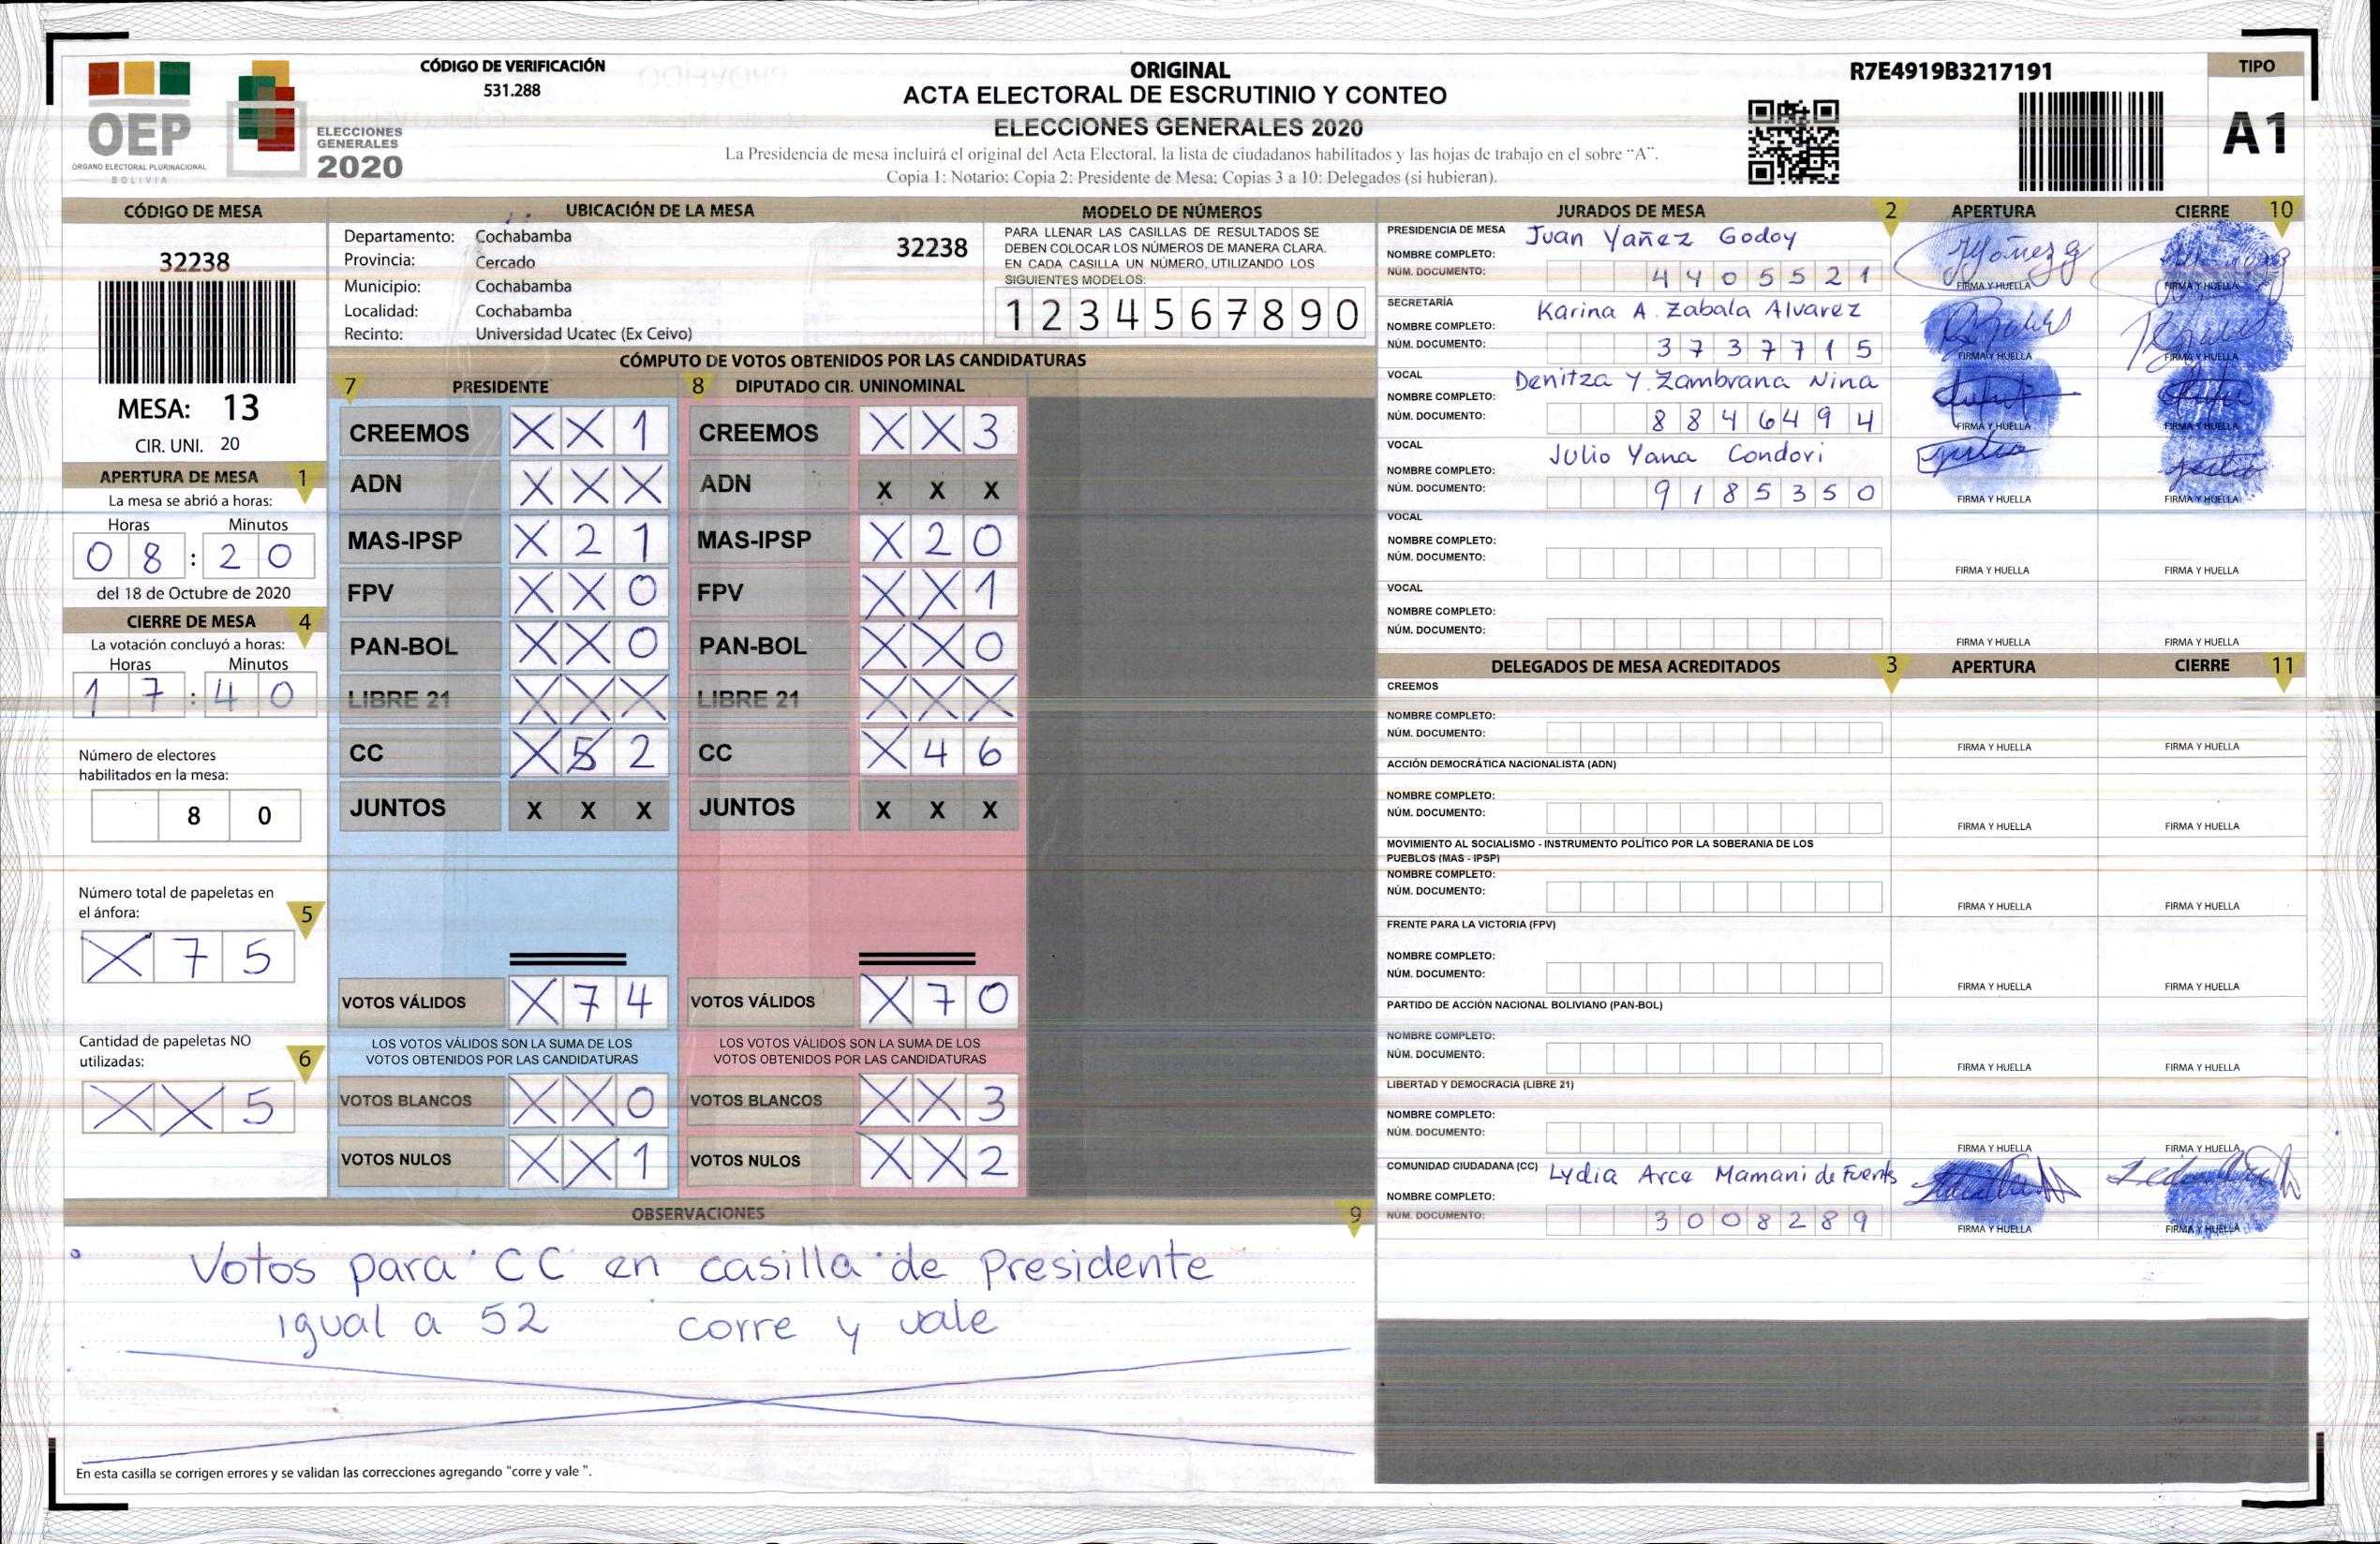 OEP
ÓRGANO ELECTORAL PLURINACIONAL
BOLIVIA
ELECCIONES
GENERALES
2020
CÓDIGO DE VERIFICACIÓN
531.288
ORIGINAL
ACTA ELECTORAL DE ESCRUTINIO Y CONTEO
ELECCIONES GENERALES 2020
La Presidencia de mesa incluirá el original del Acta Electoral, la lista de ciudadanos habilitados y las hojas de trabajo en el sobre "A".
Copia 1: Notario; Copia 2: Presidente de Mesa; Copias 3 a 10: Delegados (si hubieran).
R7E4919B3217191
TIPO
A1
CÓDIGO DE MESA
32238
MESA: 13
CIR. UNI. 20
APERTURA DE MESA 1
La mesa se abrió a horas:
Horas Minutos
08:20
del 18 de Octubre de 2020
CIERRE DE MESA 4
La votación concluyó a horas:
Horas Minutos
17:40
Número de electores
habilitados en la mesa:
8 0
Número total de papeletas en
el ánfora: 5
X 7 5
Cantidad de papeletas NO
utilizadas: 6
X X 5
UBICACIÓN DE LA MESA
Departamento: Cochabamba 32238
Provincia: Cercado
Municipio: Cochabamba
Localidad: Cochabamba
Recinto: Universidad Ucatec (Ex Ceivo)
MODELO DE NÚMEROS
PARA LLENAR LAS CASILLAS DE RESULTADOS SE
DEBEN COLOCAR LOS NÚMEROS DE MANERA CLARA.
EN CADA CASILLA UN NÚMERO, UTILIZANDO LOS
SIGUIENTES MODELOS:
1 2 3 4 5 6 7 8 9 0
CÓMPUTO DE VOTOS OBTENIDOS POR LAS CANDIDATURAS
7 PRESIDENTE 8 DIPUTADO CIR. UNINOMINAL
CREEMOS X X 1 CREEMOS X X 3
ADN X X X ADN X X X
MAS-IPSP X 2 1 MAS-IPSP X 2 0
FPV X X 0 FPV X X 1
PAN-BOL X X 0 PAN-BOL X X 0
LIBRE 21 X X X LIBRE 21 X X X
CC X 5 2 CC X 4 6
JUNTOS X X X JUNTOS X X X
VOTOS VÁLIDOS X 7 4 VOTOS VÁLIDOS X 7 0
LOS VOTOS VÁLIDOS SON LA SUMA DE LOS LOS VOTOS VÁLIDOS SON LA SUMA DE LOS
VOTOS OBTENIDOS POR LAS CANDIDATURAS VOTOS OBTENIDOS POR LAS CANDIDATURAS
VOTOS BLANCOS X X 0 VOTOS BLANCOS X X 3
VOTOS NULOS X X 1 VOTOS NULOS X X 2
OBSERVACIONES 9
Votos para CC en casilla de Presidente
igual a 52 corre y vale
En esta casilla se corrigen errores y se validan las correcciones agregando "corre y vale ".
JURADOS DE MESA 2 APERTURA CIERRE 10
PRESIDENCIA DE MESA Juan Yañez Godoy
NOMBRE COMPLETO:
NÚM. DOCUMENTO: 4405521 FIRMA Y HUELLA FIRMA Y HUELLA
SECRETARÍA Karina A. Zabala Alvarez
NOMBRE COMPLETO:
NÚM. DOCUMENTO: 3737715 FIRMA Y HUELLA FIRMA Y HUELLA
VOCAL Denitza Y. Zambrana Nina
NOMBRE COMPLETO:
NÚM. DOCUMENTO: 8846494 FIRMA Y HUELLA FIRMA Y HUELLA
VOCAL Julio Yana Condori
NOMBRE COMPLETO:
NÚM. DOCUMENTO: 9185350 FIRMA Y HUELLA FIRMA Y HUELLA
VOCAL
NOMBRE COMPLETO:
NÚM. DOCUMENTO: FIRMA Y HUELLA FIRMA Y HUELLA
VOCAL
NOMBRE COMPLETO:
NÚM. DOCUMENTO: FIRMA Y HUELLA FIRMA Y HUELLA
DELEGADOS DE MESA ACREDITADOS 3 APERTURA CIERRE 11
CREEMOS
NOMBRE COMPLETO:
NÚM. DOCUMENTO: FIRMA Y HUELLA FIRMA Y HUELLA
ACCIÓN DEMOCRÁTICA NACIONALISTA (ADN)
NOMBRE COMPLETO:
NÚM. DOCUMENTO: FIRMA Y HUELLA FIRMA Y HUELLA
MOVIMIENTO AL SOCIALISMO - INSTRUMENTO POLÍTICO POR LA SOBERANIA DE LOS
PUEBLOS (MAS - IPSP)
NOMBRE COMPLETO:
NÚM. DOCUMENTO: FIRMA Y HUELLA FIRMA Y HUELLA
FRENTE PARA LA VICTORIA (FPV)
NOMBRE COMPLETO:
NÚM. DOCUMENTO: FIRMA Y HUELLA FIRMA Y HUELLA
PARTIDO DE ACCIÓN NACIONAL BOLIVIANO (PAN-BOL)
NOMBRE COMPLETO:
NÚM. DOCUMENTO: FIRMA Y HUELLA FIRMA Y HUELLA
LIBERTAD Y DEMOCRACIA (LIBRE 21)
NOMBRE COMPLETO:
NÚM. DOCUMENTO: FIRMA Y HUELLA FIRMA Y HUELLA
COMUNIDAD CIUDADANA (CC) Lydia Arce Mamani de Fuents
NOMBRE COMPLETO:
NÚM. DOCUMENTO: 3008289 FIRMA Y HUELLA FIRMA Y HUELLA